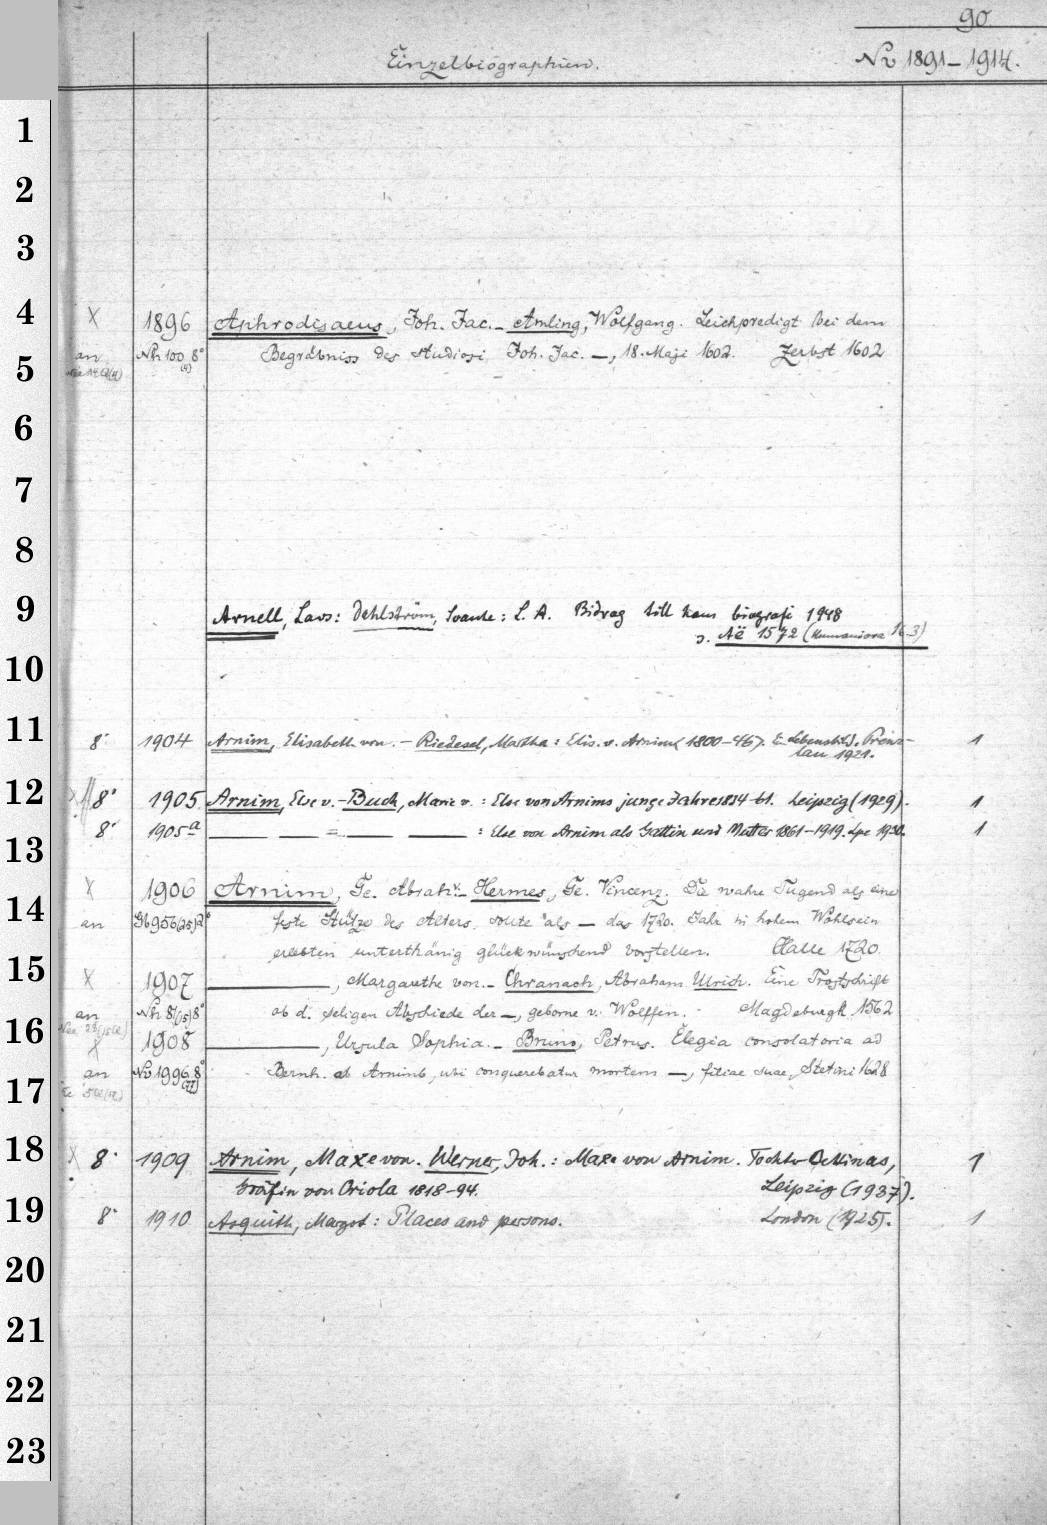 90
Einzelbiographien.
Nv 1891–1914.
1
2
3
4
X 1896 Aphrodisaeus, Joh. Jac. – Amling, Wolfgang. Leichpredigt bei dem
an Nh 100 8° Begräbniss des studiosi Joh. Jac. —, 18. Maji 1602. Zerbst 1602
(4)
5
6
7
8
9
Arnell, Lars: Dehlström, Svante: L. A. Bidrag till hans biografi 1948
s. Aë 1572 (Humaniora 16.3)
10
11
8° 1904 Arnim, Elisabeth von. – Riedesel, Martha: Elis. v. Arnim (1800–46). E. Lebensbild. Prenz- 1
lau 1921.
12
8° 1905 Arnim, Else v. – Buch, Marie v.: Else von Arnims junge Jahre 1834–61. Leipzig (1929). 1
8° 1905a — — = — — : Else von Arnim als Gattin und Mutter 1861–1919. Lpz 1930. 1
13
X 1906 Arnim, Ge. Abrah. v. – Hermes, Ge. Vincenz. Die wahre Tugend als eine
14
an Gb 956(25) 2° feste Stütze des Alters, sollte als — das 1720. Jahr in hohem Wohlsein
erlebten unterthänig glückwünschend vorstellen. Halle 1720
15
X 1907 —, Margarethe von. – Chranach, Abraham Ulrich. Eine Trostschrift
an Nh 8(15) 8° ob d. seligen Abschiede der —, geborne v. Wolffen. Magdeburgk 1562
16
X 1908 —, Ursula Sophia. – Bruno, Petrus. Elegia consolatoria ad
an Nv 1996 8° Bernh. ab Arnimb, ubi conquerebatur mortem —, filiae suae, Stetini 1628
17
18
X 8° 1909 Arnim, Maxe von. Werner, Joh.: Maxe von Arnim. Tochter Bettinas, 1
Gräfin von Oriola 1818–94. Leipzig (1937).
19
8° 1910 Asquith, Margot: Places and persons. London (1925). 1
20
21
22
23